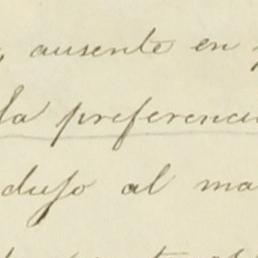 ausente en
la preferenci
dujo al ma